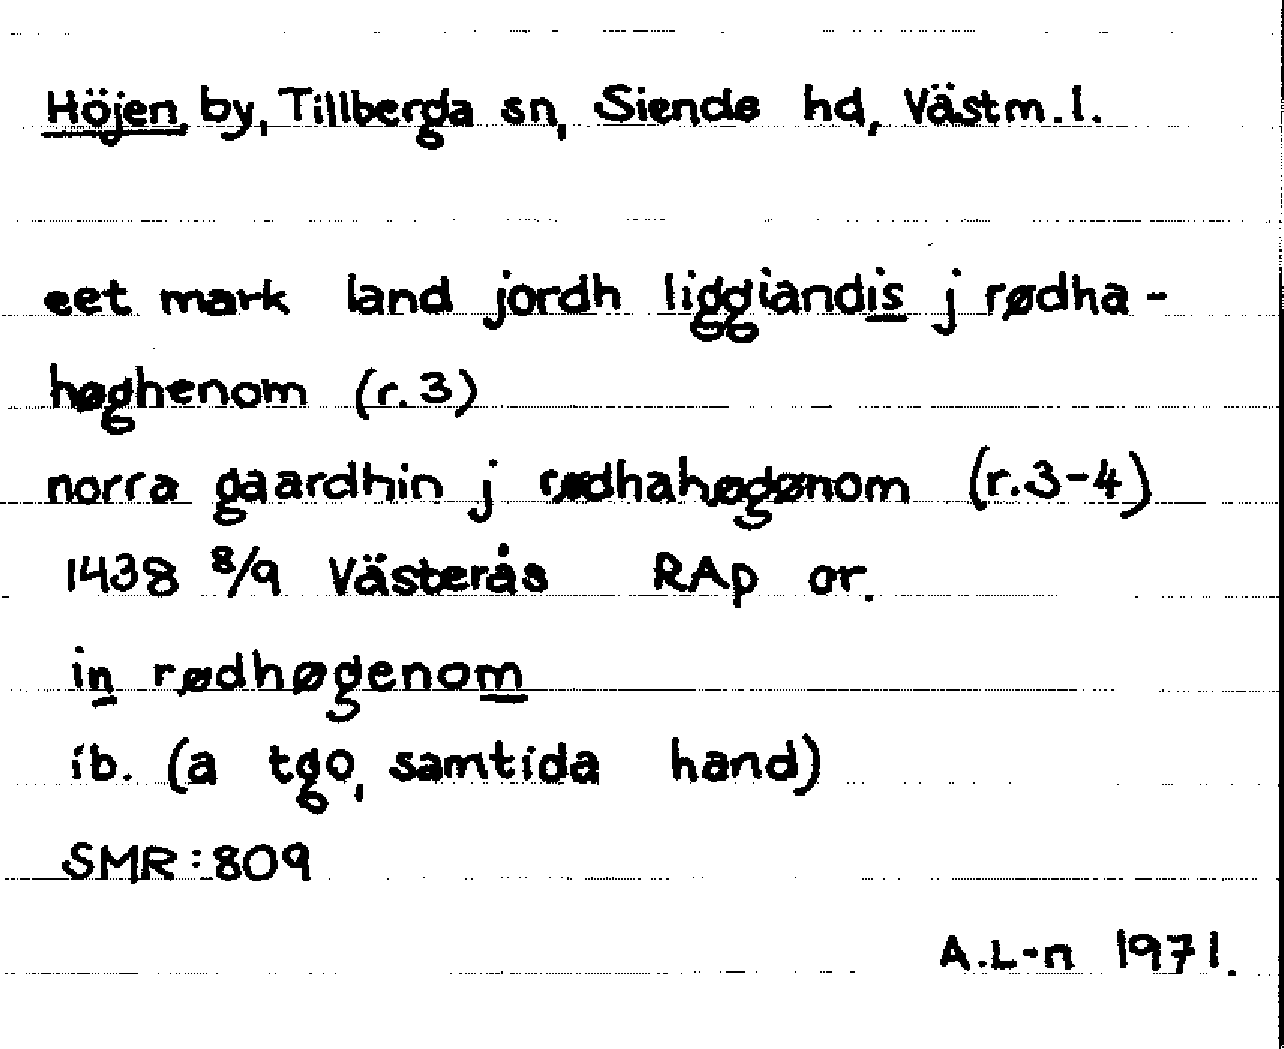 Höjen by, Tillberga sn, Siende hd, Västm. l.
eet mark land jordh liggiandis j rødha-
høghenom (r. 3)
norra gaardhin j rødhahøgønom (r. 3-4)
1438 8/9 Västerås RAp or.
in rødhøgenom
ib. (a tgo, samtida hand)
SMR: 809
A.L-n 1971.